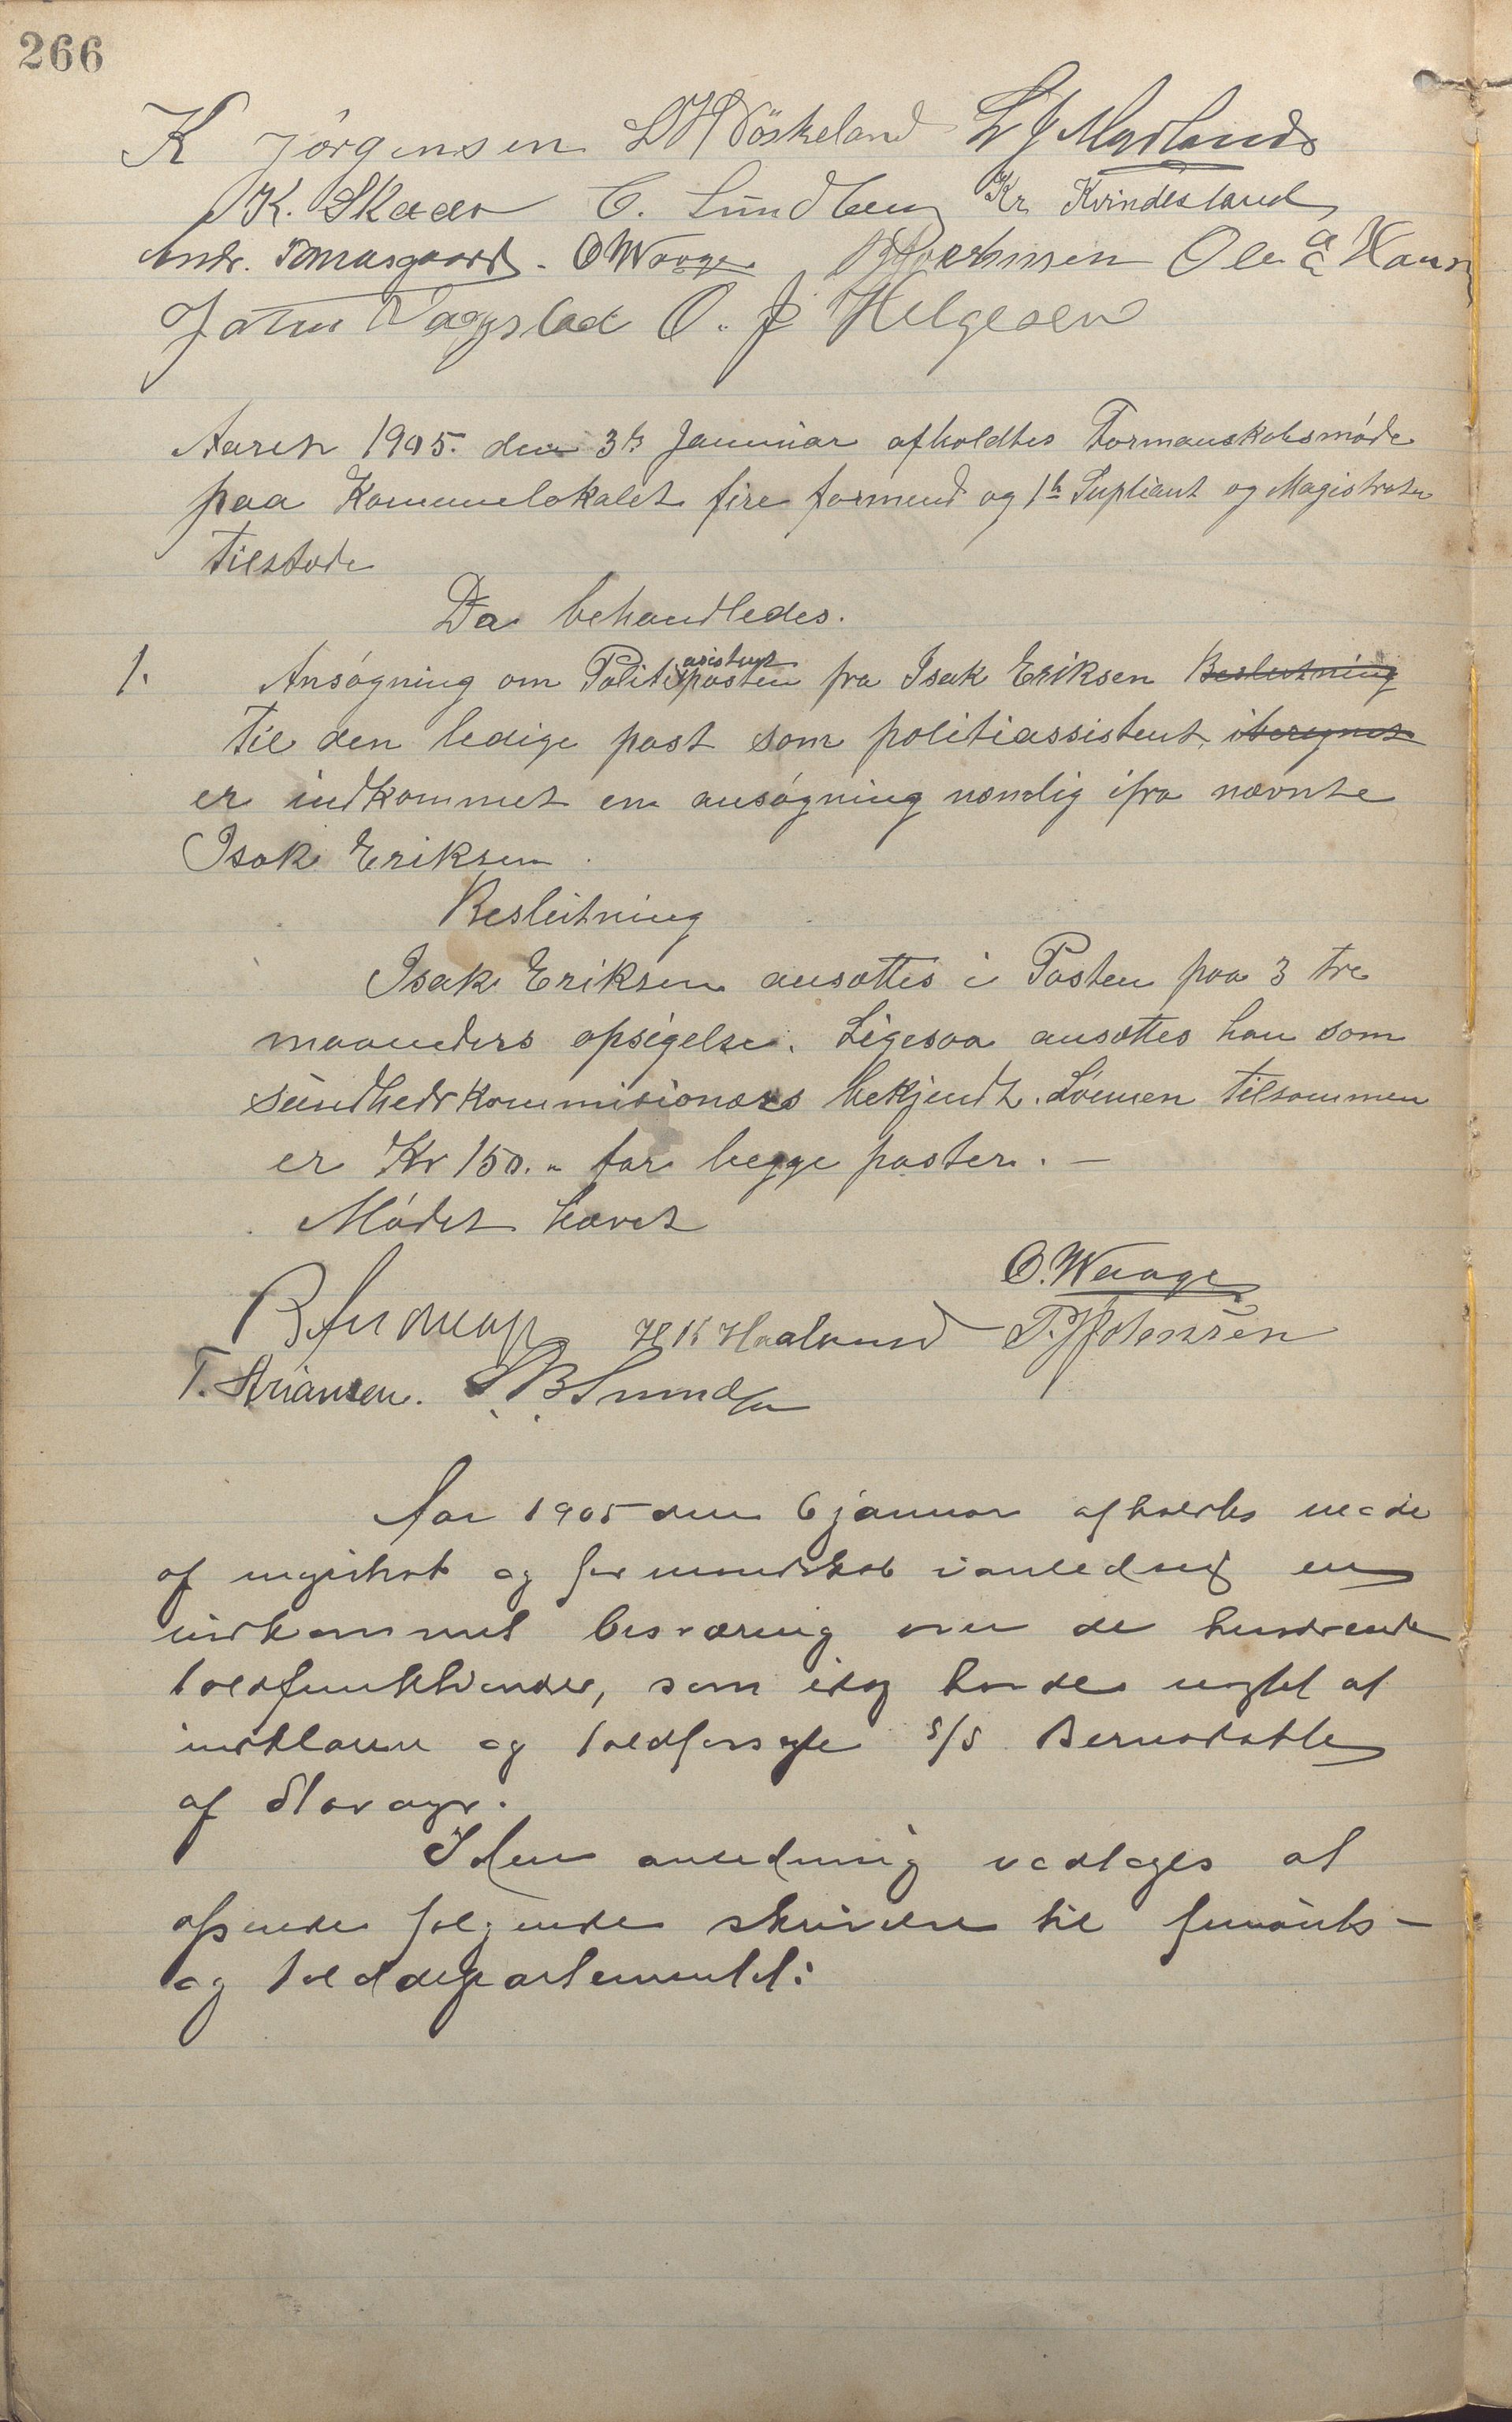 266
K Jörgensen L H Vöstreland L J Marland
K. Skaar C. Lundberg Kr Kvindesland
Andr. Tomasgaard. O Waage Ole G Haun
John Vagstad O. J Helgesen
Aaret 1905. den 3die Januar afholdtes Formanskabsmøde
paa Kommunelokalet fire formend og 1ste Supliant og Magistraten
tilstæde
Da behandledes.
asistent
1. Ansøgning om Politiposten fra Isak Eriksen Beslutning
Til den ledige post som politiassistent
er indkommet en ansøgning nemlig ifra nævnte
Isak Eriksen
Beslutning
Isak Eriksen ansættes i Posten paa 3 tre
maaneders opsigelse. Ligesaa ansættes han som
sundhedskommisionæns bekjendt. Lønnen tilsammen
er Kr 150.- for begge poster. -
Mødet hævet
O. Waage
B Andreas H K Haaland P. Johansen
T. Ariansen. S. B. Sund
Aar 1905 den 6 januar afholdtes møde
af magistrat og formandskab i anledning en
indkommet besværing over de herværende
toldfunktionærer, som idag havde negtet at
indklarere og toldforsegle S/S Bernadotte
af Stavanger.
I den anledning vedtages at
afsende følgende skrivelse til finants-
og tolddepartementet: